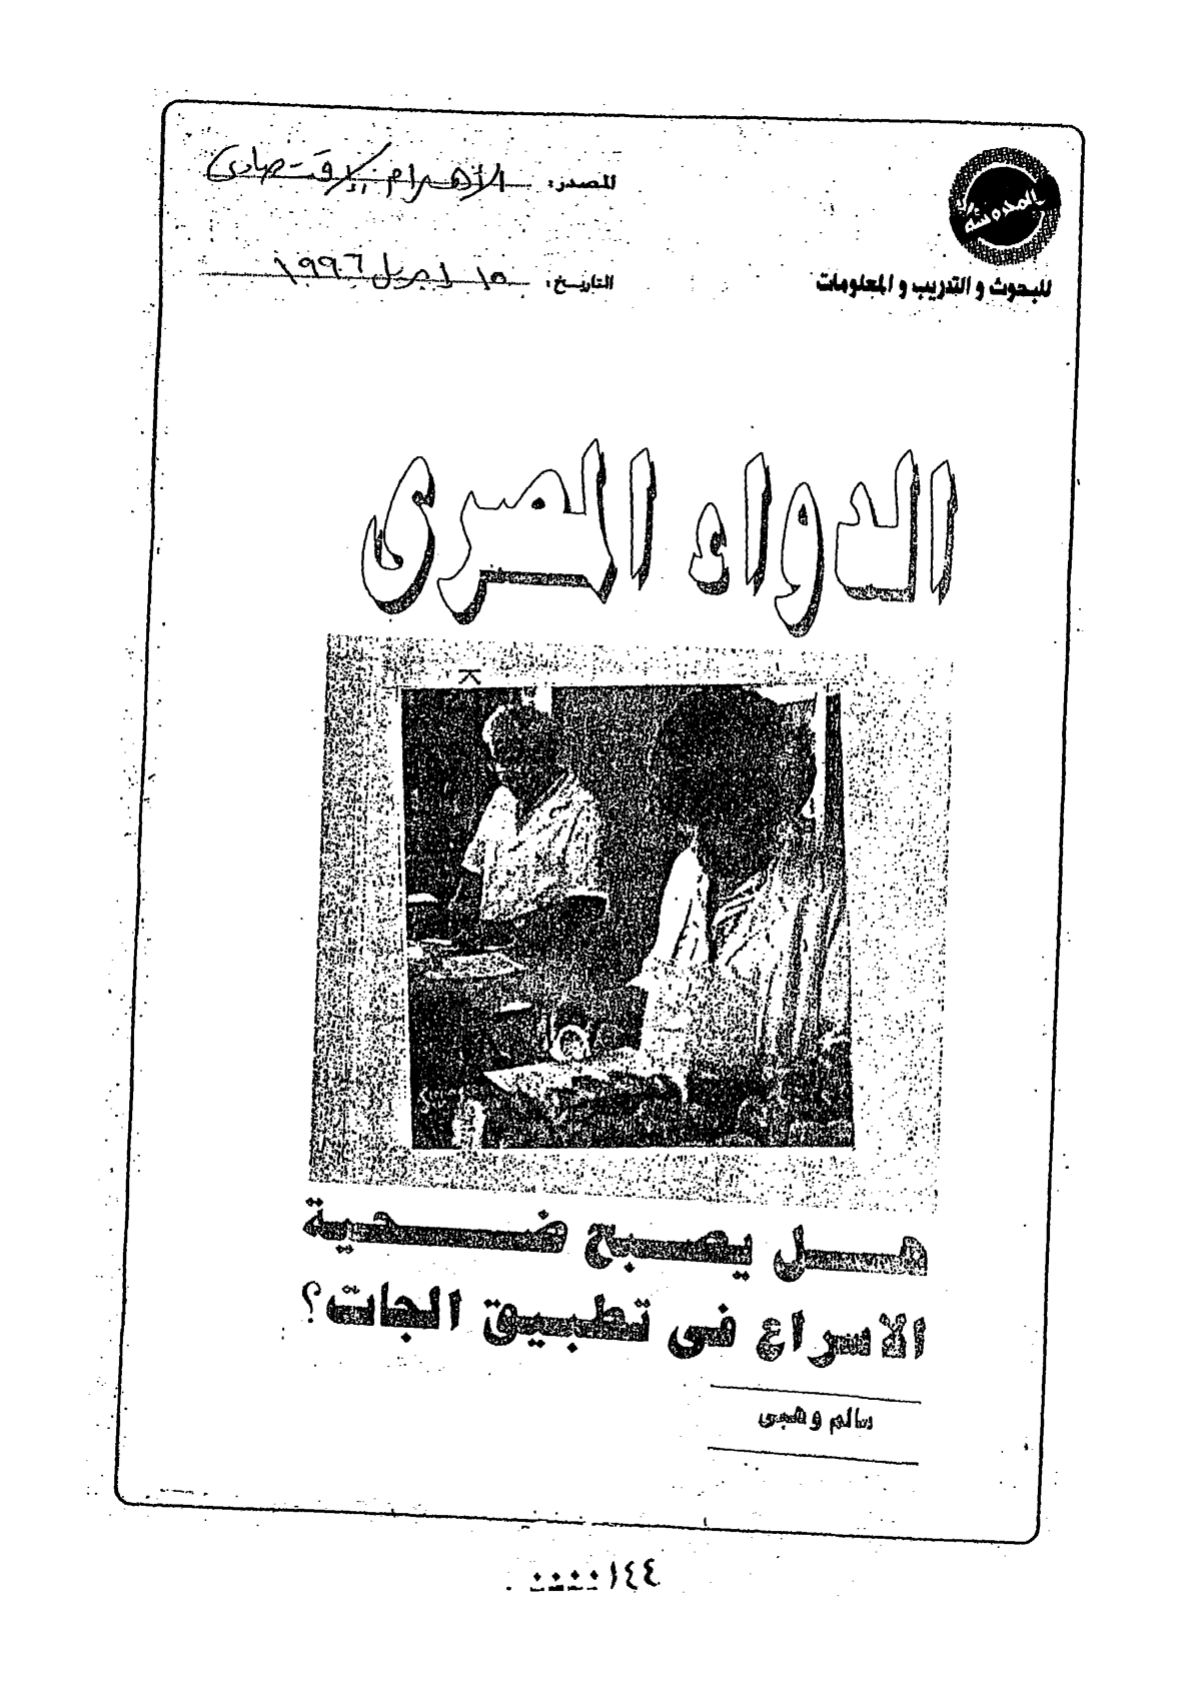 المحروسة
للبحوث و التدريب و المعلومات
المصدر: الأهرام الاقتصادى
التاريخ: ١٥ ابريل ١٩٩٦
الدواء المصرى
هل يصبح ضحية
الاسراع فى تطبيق الجات؟
سالم وهبى
١٤٤